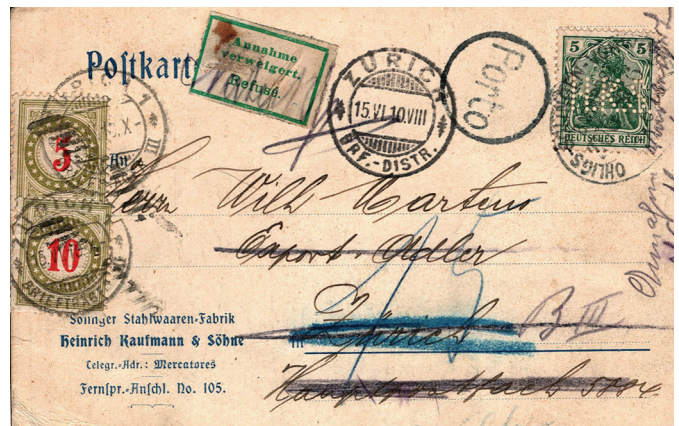 Postkarte
Annahme
verweigert.
Refusé.
ZÜRICH
15.VI.10.VIII
BRF.-DISTR.
Porto
5 5
DEUTSCHES REICH
OHLIGS
5
10
An
Herrn Wilh Martens
Export-Adler
15
in Zürich B III
Hauptpostfach
Solinger Stahlwaaren-Fabrik
Heinrich Kaufmann & Söhne
Telegr.-Adr.: Mercatores
Fernspr.-Anschl. No. 105.